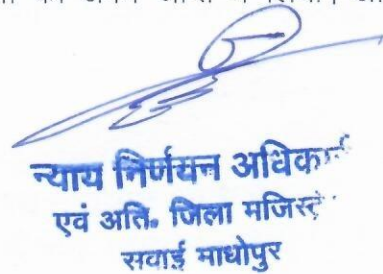 न्याय निर्णयन अधिकारी
एवं अति. जिला मजिस्ट्रेट
सवाई माधोपुर